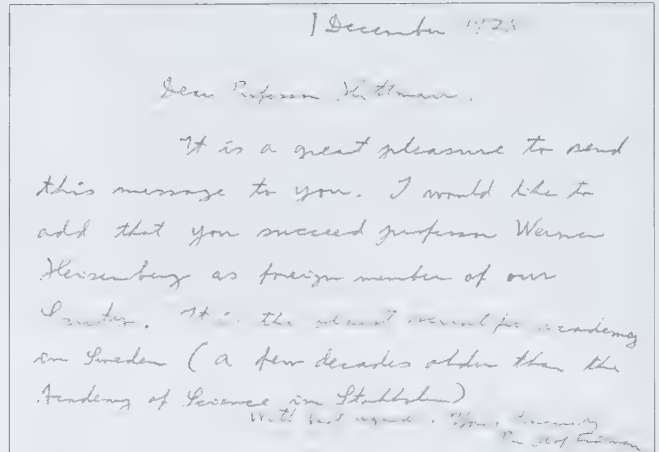 1 December
Dear Professor
It is a great pleasure to send
this message to you. I would like to
add that you succeed professor Werner
Heisenberg as foreign member of our
Society. It is the oldest academy
in Sweden (a few decades older than the
Academy of Science in Stockholm)
With best regards. Yours sincerely